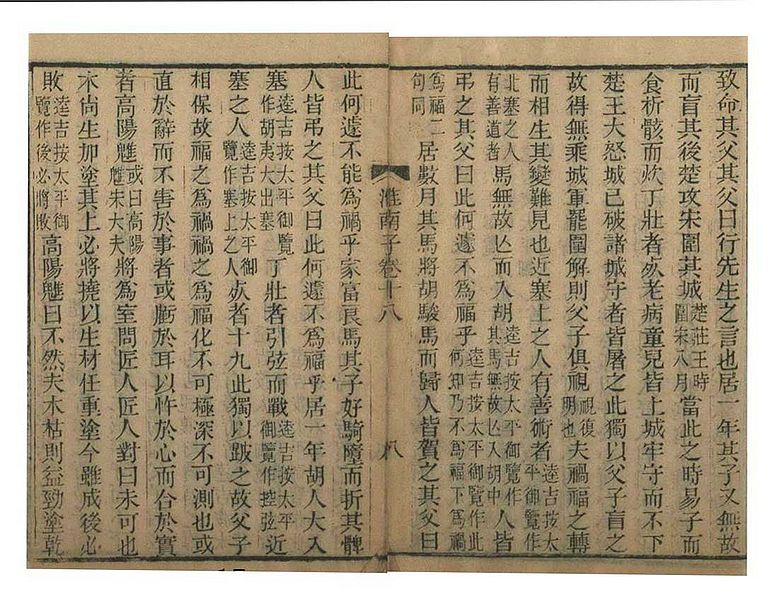 致命其父其父曰行先生之言也居一年其子又無故
而盲其後楚攻宋圍其城楚莊王時圍宋八月當此之時易子而
食析骸而炊丁壯者死老病童兒皆上城牢守而不下
楚王大怒城已破諸城守者皆屠之此獨以父子盲之
故得無乘城軍罷圍解則父子俱視視復明也夫禍福之轉
而相生其變難見也近塞上之人有善術者逵吉按太平御覽作
北塞之人有善道者馬無故亾而入胡逵吉按太平御覽作其馬無故亾入胡中人皆
弔之其父曰此何遽不爲福乎逵吉按太平御覽作此何知乃不爲福下爲禍
爲福二句同居數月其馬將胡駿馬而歸人皆賀之其父曰
淮南子卷十八
八
此何遽不能爲禍乎家富良馬其子好騎墮而折其髀
人皆弔之其父曰此何遽不爲福乎居一年胡人大入
塞逵吉按太平御覽作胡夷大出塞丁壯者引弦而戰逵吉按太平御覽作控弦近
塞之人逵吉按太平御覽作塞上之人死者十九此獨以跛之故父子
相保故福之爲禍禍之爲福化不可極深不可測也或
直於辭而不害於事者或虧於耳以忤於心而合於實
者高陽魋或曰高陽魋宋大夫將爲室問匠人匠人對曰未可也
木尚生加塗其上必將撓以生材任重塗今雖成後必
敗逵吉按太平御覽作後必將敗高陽魋曰不然夫木枯則益勁塗乾